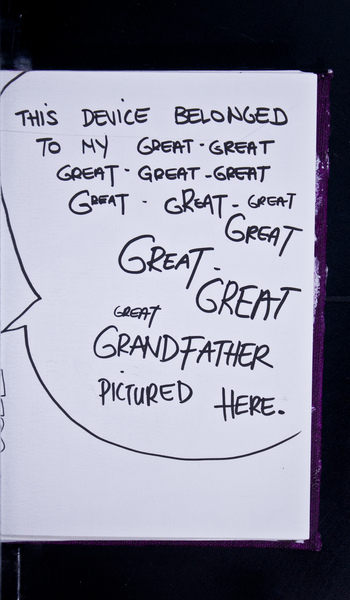 THIS DEVICE BELONGED
TO MY GREAT-GREAT
GREAT-GREAT-GREAT
GREAT - GREAT - GREAT
GREAT
GREAT-
GREAT
GREAT
GRANDFATHER
PICTURED HERE.